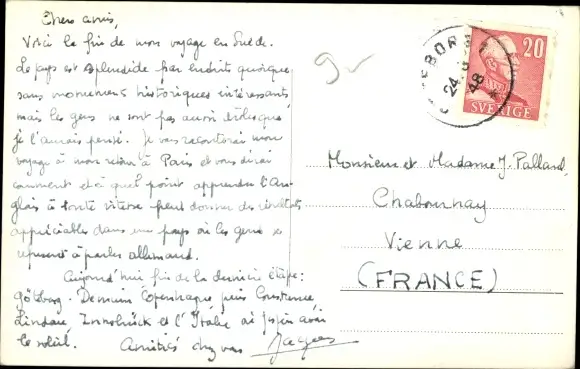 Chers amis,
Voici la fin de mon voyage en Suède.
Le pays est splendide par endroits quoique
sans monuments historiques intéressants,
mais les gens ne sont pas aussi drôles que
je l'aurais pensé. Je vous raconterai mon
voyage à mon retour à Paris et vous dirai
comment et à quel point apprendre l'An-
glais à toute vitesse peut donner des résultats
appréciables dans un pays où les gens se
refusent à parler allemand.
Aujourd'hui fin de la dernière étape:
Göteborg. Demain Copenhague, puis Constance,
Lindau, Innsbrück et l'Italie où j'espère avoir
le soleil. Amitiés chez vous Jacques
GÖTEBORG 1
24 48
20
SVERIGE
Monsieur et Madame J. Palland,
Chabournay
Vienne
(FRANCE)